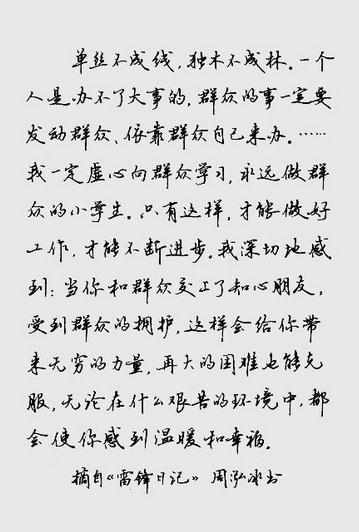 单丝不成线，独木不成林。一个
人是办不了大事的，群众的事一定要
发动群众、依靠群众自己来办。……
我一定虚心向群众学习，永远做群
众的小学生。只有这样，才能做好
工作，才能不断进步。我深切地感
到：当你和群众交上了知心朋友，
受到群众的拥护，这样会给你带
来无穷的力量，再大的困难也能克
服，无论在什么艰苦的环境中，都
会使你感到温暖和幸福。
摘自《雷锋日记》 周泓冰书